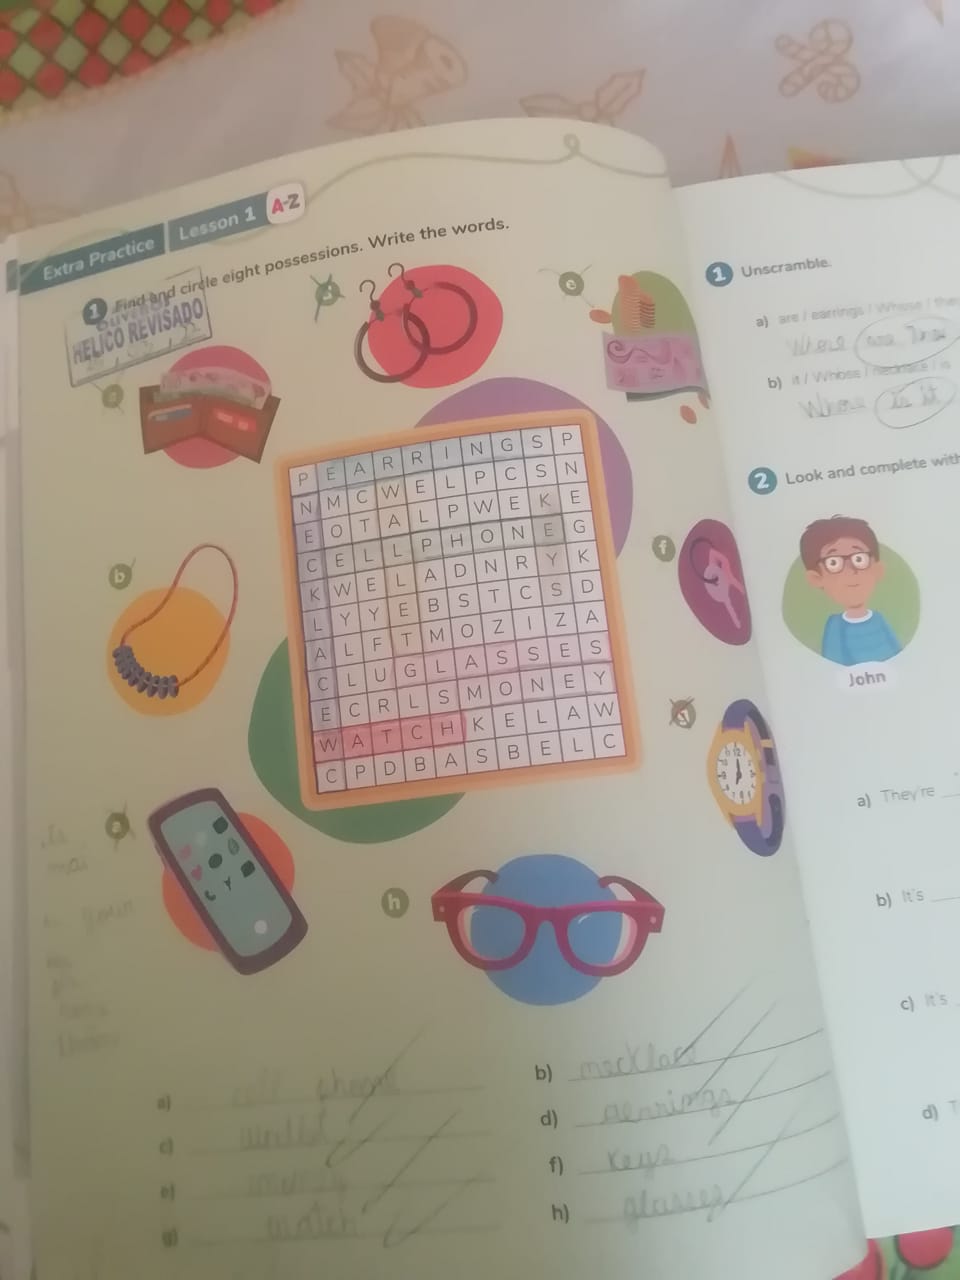 Extra Practice Lesson 1 A-Z
1 Find and circle eight possessions. Write the words.
HELICO REVISADO
d
e
b
f
a
h
P E A R R I N G S P
N M C W E L P C S N
E O T A L P W E K E
C E L L P H O N E G
K W E L A D N R Y K
L Y Y E B S T C S D
A L F T M O Z I Z A
C L U G L A S S E S
E C R L S M O N E Y
W A T C H K E L A W
C P D B A S B E L C
a) cell phone
b) necklace
c) wallet
d) earrings
e) money
f) keys
g) watch
h) glasses
1 Unscramble.
a) are / earrings / Whose /
Whose are
b) it / Whose / necklace / is
Whose is it
2 Look and complete
John
a) They're
b) It's
c) It's
d)